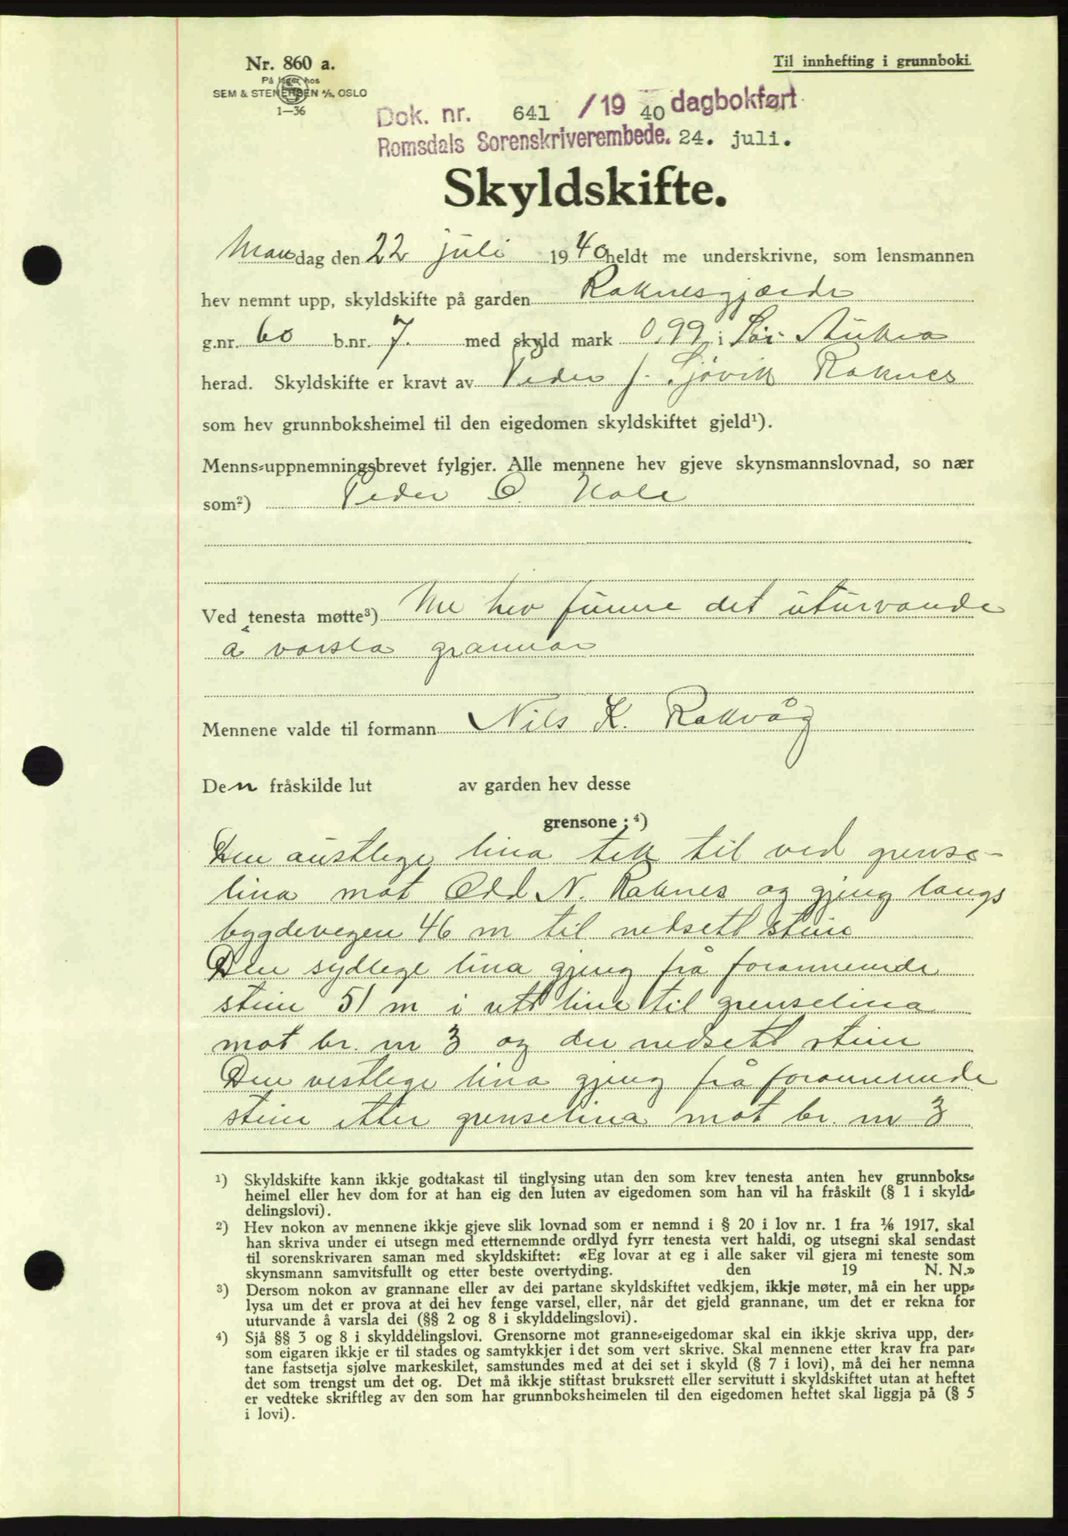 Nr. 860 a.
Til innhefting i grunnboki.
På lager hos
SEM & STENERSEN A/S, OSLO
1—36
Dok. nr. 641 /19 40 dagbokført
Romsdals Sorenskriverembede. 24. juli.
Skyldskifte.
Mandag den 22 juli 1940 heldt me underskrivne, som lensmannen
hev nemnt upp, skyldskifte på garden Raknesgjærde
g.nr. 60 b.nr. 7. med skyld mark 0.99 i Sør-Aukra
herad. Skyldskifte er kravt av Peder J. Sjøvik Raknes
som hev grunnboksheimel til den eigedomen skyldskiftet gjeld¹).
Menns-uppnemningsbrevet fylgjer. Alle mennene hev gjeve skynsmannslovnad, so nær
som²) Peder O. Hole
Ved tenesta møtte³) Me hev funne det uturvande
å varsla grannar
Mennene valde til formann Nils K. Rakvåg
Den fråskilde lut av garden hev desse
grensone ; ⁴)
Den austlege lina tek til ved grense-
lina mot Odd N. Raknes og gjeng langs
bygdevegen 46 m til nedsett stein
Den sydlege lina gjeng frå forannemnde
stein 51 m i rett line til grenselina
mot br. nr 3 og der nedsett stein
Den vestlege lina gjeng frå forannemnde
stein etter grenselina mot br. nr 3
¹) Skyldskifte kann ikkje godtakast til tinglysing utan den som krev tenesta anten hev grunnboks-
heimel eller hev dom for at han eig den luten av eigedomen som han vil ha fråskilt (§ 1 i skyld-
delingslovi).
²) Hev nokon av mennene ikkje gjeve slik lovnad som er nemnd i § 20 i lov nr. 1 fra 1/6 1917, skal
han skriva under ei utsegn med etternemnde ordlyd fyrr tenesta vert haldi, og utsegni skal sendast
til sorenskrivaren saman med skyldskiftet: «Eg lovar at eg i alle saker vil gjera mi teneste som
skynsmann samvitsfullt og etter beste overtyding. den 19 N. N.»
³) Dersom nokon av grannane eller av dei partane skyldskiftet vedkjem, ikkje møter, må ein her upp-
lysa um det er prova at dei hev fenge varsel, eller, når det gjeld grannane, um det er rekna for
uturvande å varsla dei (§§ 2 og 8 i skylddelingslovi).
⁴) Sjå §§ 3 og 8 i skylddelingslovi. Grensorne mot granne-eigedomar skal ein ikkje skriva upp, der-
som eigaren ikkje er til stades og samtykkjer i det som vert skrive. Skal mennene etter krav fra par-
tane fastsetja sjølve markeskilet, samstundes med at dei set i skyld (§ 7 i lovi), må dei her nemna
det som trengst um det og. Det må ikkje stiftast bruksrett eller servitutt i skyldskiftet utan at heftet
er vedteke skriftleg av den som har grunnboksheimelen til den eigedomen heftet skal liggja på (§ 5
i lovi).